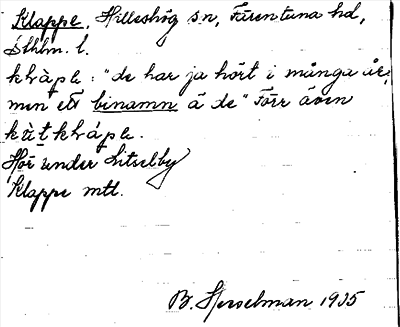 Klappe, Hilleshög sn, Färentuna hd,
Sthlm. l.
klàpe : "de har ja hört i många år,
men ett binamn ä de" Förr även
klàpe.
Hör under Litselby
Klappe mtl.
B. Hesselman 1935